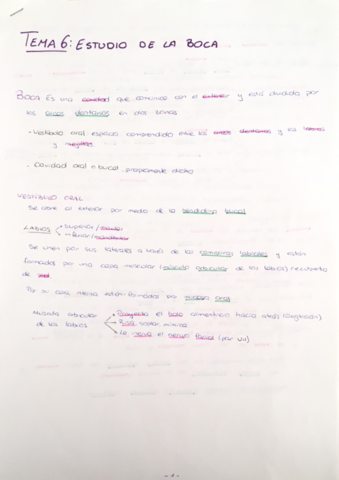 TEMA 6: ESTUDIO DE LA BOCA
BOCA es una cavidad que comunica con el exterior y está dividida por
los arcos dentarios en dos zonas
- Vestíbulo oral espacio comprendido entre los arcos dentarios y los labios
y mejillas
- Cavidad oral o bucal, propiamente dicha
VESTÍBULO ORAL
Se abre al exterior por medio de la hendidura bucal
LABIOS superior/
inferior/
Se unen por sus laterales a través de las comisuras labiales y están
formados por una capa muscular (músculo orbicular de los labios) recubierta
de piel
Por su cara interna están formados por mucosa oral
Músculo orbicular
de los labios
el bolo alimenticio hacia atrás
succión
Lo el nervio facial (par VII)
- 1 -